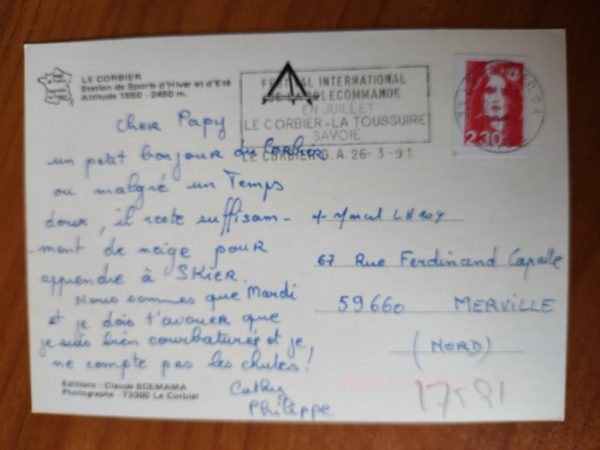 LE CORBIER
Station de Sports d'Hiver et d'Eté
Altitude 1550 - 2450 m.
FESTIVAL INTERNATIONAL
DE LA TELECOMMANDE
EN JUILLET
LE CORBIER - LA TOUSSUIRE
SAVOIE
LE CORBIER G.A. 26-3-91
2,30
Cher Papy
un petit bonjour du Corbier
ou malgré un Temps
doux, il reste suffisam-
ment de neige pour
apprendre à SKIER.
Nous sommes que Mardi
et je dois t'avouer que
je suis bien courbaturée et je,
ne compte pas les chutes!
Cathy
Philippe
Marcel
67 Rue Ferdinand Capelle
59660 MERVILLE
(NORD)
Editions : Claude SCEMAMA
Photographe - 73300 Le Corbier